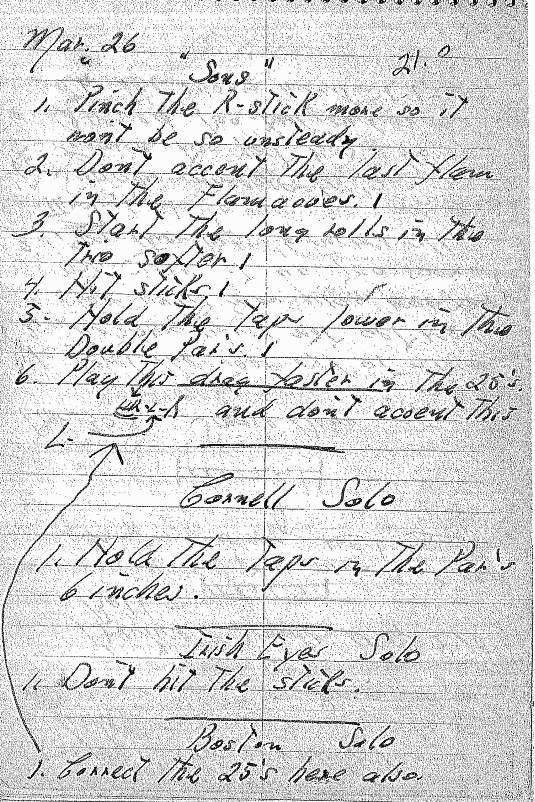 Mar. 26
21.0
"Sons"
1. Pinch the R-stick more so it
won't be so unsteady
2. Don't accent the last flam
in the Flamacues. 1
3. Start the long rolls in the
Trio softer 1
4. Hit sticks. 1
5. Hold the Taps lower in the
Double Par's. 1
6. Play this drag faster in the 25's.
and don't accent this
L-
Cornell Solo
1. Hold the Taps in the Par's
6 inches.
Irish Eyes Solo
1. Don't hit the sticks.
Boston Solo
1. Correct the 25's here also.